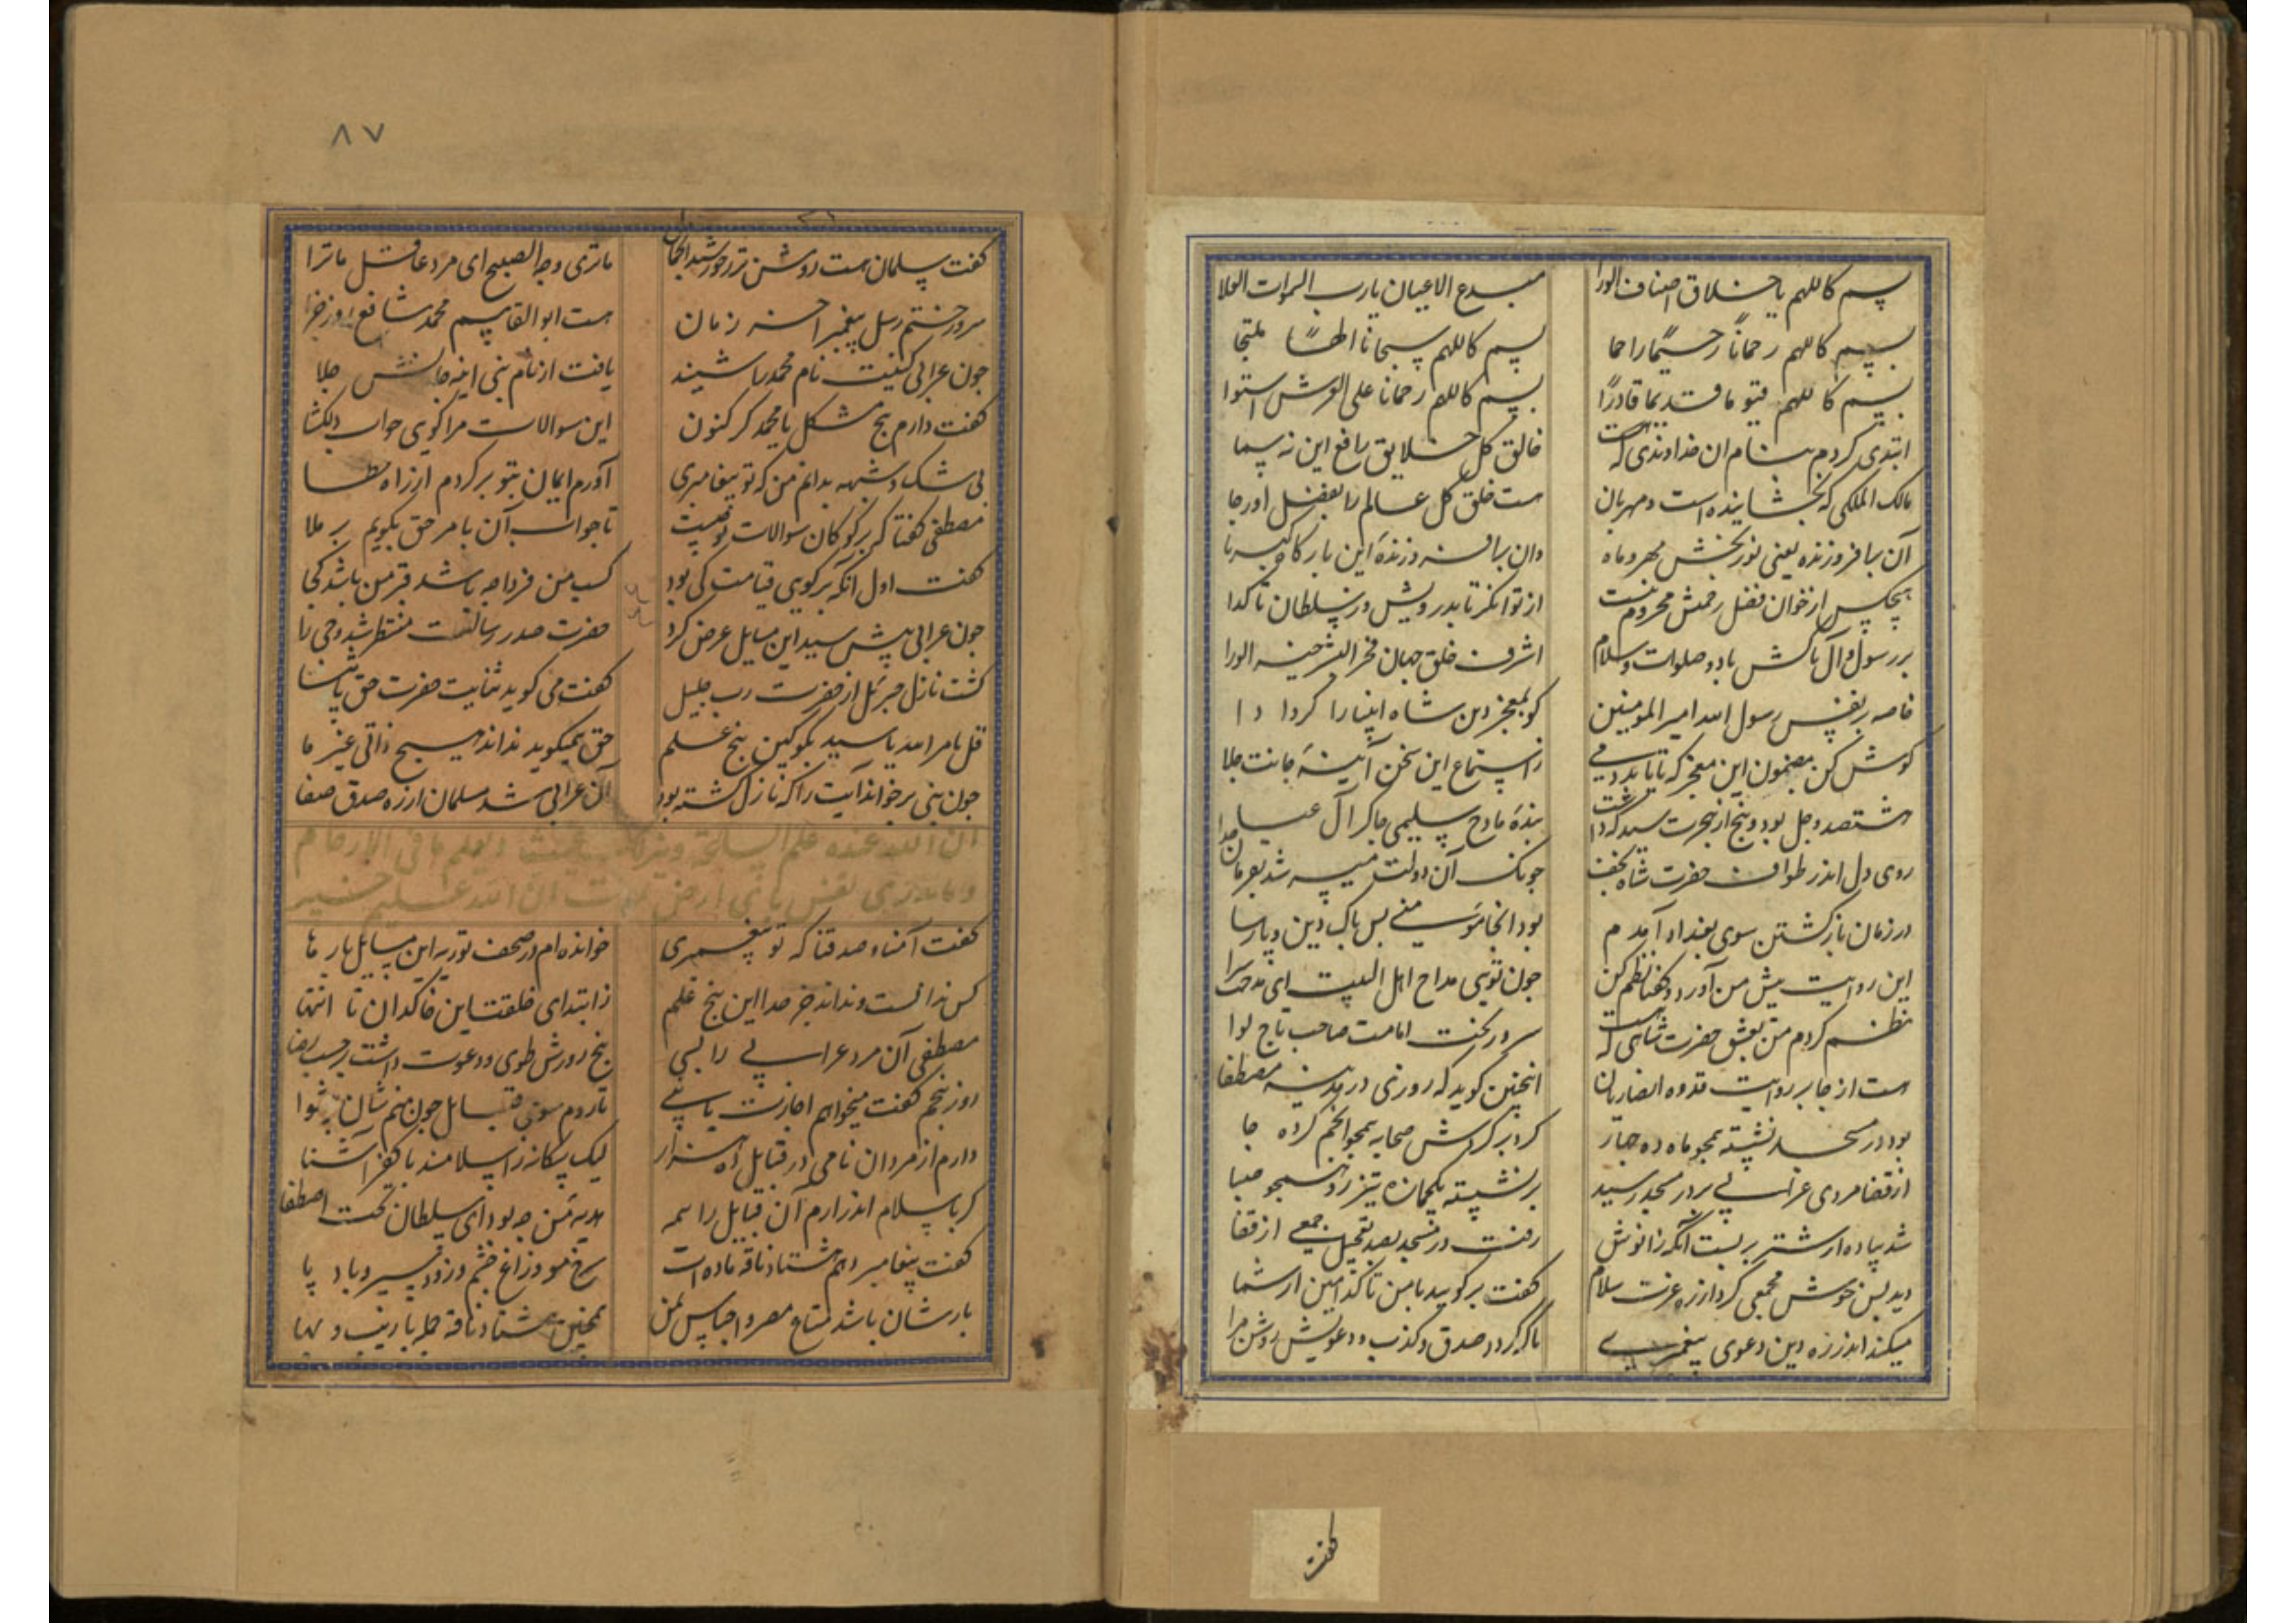 بسم کاللهم یا خلاق اصناف الورا مبدع الاعیان یا رب السموات العلا
بسم کاللهم رحمانا رحیما راحما بسم کاللهم سبحانا الها ملتجا
بسم کاللهم قیوما قدیما قادرا بسم کاللهم رحمانا علی العرش استوا
ابتدی کردم بنام آن خداوندی که است خالق کل خلایق رافع این نه سما
مالک الملکی که بخشاینده است و مهربان هست خلق کل عالم را بفضل او رجا
آن برافروزنده یعنی نوربخش مهر و ماه وان برافرازنده این بارگاه
هیچکس از خوان فضل رحمتش محروم نیست از توانکر تا بدرویش و ز سلطان تا کدا
بر رسول و آل پاکش باد و صلوات و سلام اشرف خلق جهان فخر البشر خیر الورا
خاصه بر نفس رسول الله امیر المومنین کو بمعجز دین شاه انبیا را کرد ادا
کوش کن مضمون این معجز که تا یابد دمی ز استماع این سخن آیینه جانت جلا
هشتصد و چل بود و پنج از هجرت سید که داشت بنده مادح سلیمی چاکر آل عبا
روی دل اندر طواف حضرت شاه نجف چونک آن دولت میسر شد بفرمان خدا
در زمان باز کشتن سوی بغداد آمدم بود انجا مومنی بس پاک دین و پارسا
این روایت پیش من آورد و کفتا نظم کن چون تویی مداح اهل البیت ای مدحت سرا
نظم کردم من بعشق حضرت شاهی که هست سرور تخت امامت صاحب تاج لوا
هست از جابر روایت قدوه انصاریان اینچنین کوید که روزی در مدینه مصطفا
بود در مسجد نشسته همچو ماه ده چهار کرد بر کردش صحابه همچو انجم کرده جا
از قضا مردی عرابی بر در مسجد رسید بر نشسته بکجمازه تیز رو همچو صبا
شد پیاده از شتر بر بست آنکه زانوش رفت در مسجد بصد تعجیل جمعی از قضا
دید بس خوش مجمعی کرد از ره عزت سلام کفت برکویید با من تا کدامین از شما
میکند اندر ره دین دعوی پیغمبری تا که کردد صدق و کذب و دعویش روشن مرا
کفت
۸۷
کفت سلمان هست روشن تر ز خورشید ما تری وجه الصبیح ای مرد عاقل ماترا
سرور ختم رسل پیغمبر آخر زمان هست ابو القاسم محمد شافع روز جزا
چون عرابی کنیت نام محمد را شنید یافت از نام نبی آینه جانش جلا
کفت دارم پنج مشکل یا محمد کر کنون این سوالات مرا کویی جواب دلکشا
بی شک و شبهه بدانم من که تو پیغامبری آورم ایمان بتو برکردم از راه خطا
مصطفی کفتا که برکو کان سوالات تو چیست تا جواب آن بامر حق بکویم بر ملا
کفت اول آنکه برکویی قیامت کی بود کسب من فردا چه باشد قبر من باشد کجا
چون عرابی پیش سید این مسایل عرض کرد حضرت صدر رسالت منتظر شد وحی را
کشت نازل جبرئل از حضرت رب جلیل کفت می کوید ثنایت حضرت حق یا
قل بامر الله یا سید بکو کین پنج علم حق همیکوید نداند هیچ ذاتی غیر ما
چون نبی برخواند آیت را که نازل کشته بود آن عرابی شد مسلمان از ره صدق و صفا
ان الله عنده علم الساعة وینزل الغیث ویعلم ما فی الارحام
وما تدری نفس بای ارض تموت ان الله علیم خبیر
کفت آمنا و صدقنا که تو پیغمبری خوانده ام در صحف توریه این مسایل بار ها
کس ندانست و نداند جز خدا این پنج علم ز ابتدای خلقت این خاکدان تا انتها
مصطفی آن مرد عرابی را بسی پنج روزش طوی و دعوت داشت بر حسب رضا
روز پنجم کفت میخواهم اجازت یا نبی تا روم سوی قبایل چون منم شان پیشوا
دارم از مردان نامی در قبایل ده هزار لیک بیکانه ز اسلامند با کفر آشنا
کر باسلام اندر آرم آن قبایل را همه هدیه من چه بود ای سلطان تخت اصطفا
کفت پیغامبر دهم هشتاد ناقه ماده است سرخ مو و زاغ چشم و زود سیر و باد پا
بارشان باشد متاع مصر و اجناس یمن همچنین هشتاد ناقه جمله با زیب و بها